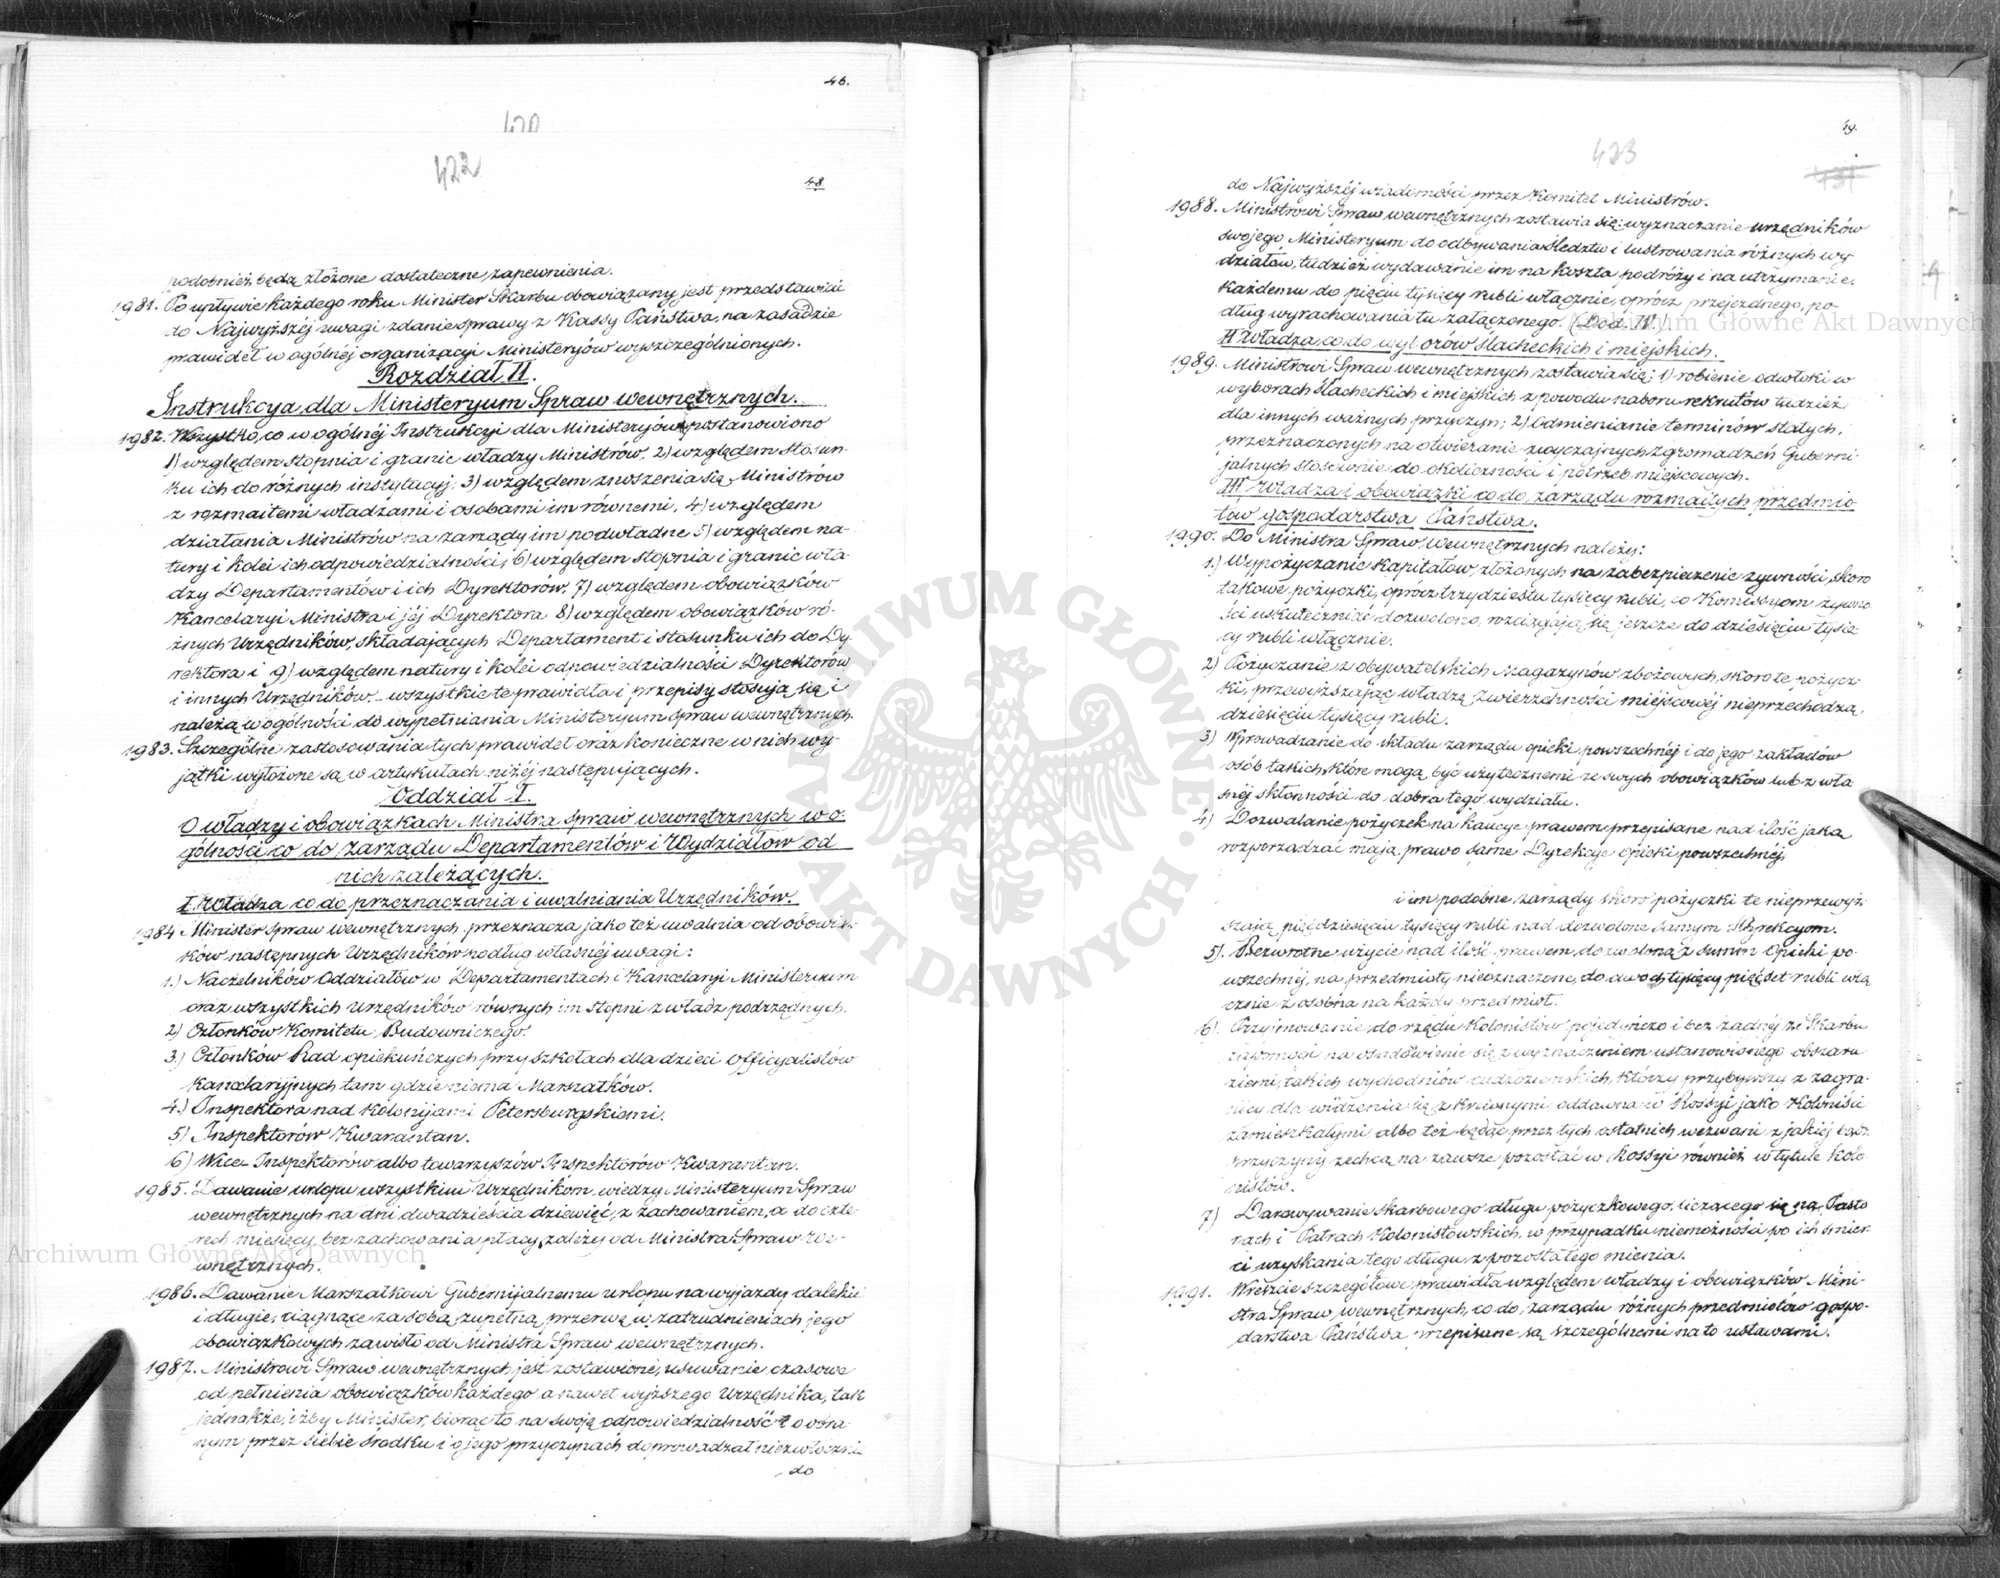 46.
420
422
48
podobnież będą złożone dostateczne zapewnienia.
1981. Po upływie każdego roku Minister Skarbu obowiązany jest przedstawić
do Najwyższéj uwagi zdanie sprawy z Kassy Państwa, na zasadzie
prawideł w ogólnéj organizacyi Ministeryów wyszczególnionych.
Rozdział II.
Instrukcya dla Ministeryum Spraw wewnętrznych.
1982. Wszystko, co w ogólnéj Instrukcyi dla Ministeryów postanowiono
1) względem stopnia i granic władzy Ministrów, 2) względem stosun-
ku ich do różnych instytucyj: 3) względem znoszenia się Ministrów
z rozmaitemi władzami i osobami im równemi, 4) względem
działania Ministrów na zarządy im podwładne 5) względem na-
tury i kolei ich odpowiedzialności, 6) względem stopnia i granic wła-
dzy Departamentów i ich Dyrektorów, 7) względem obowiązków
Kancelaryi Ministra i jéj Dyrektora 8) względem obowiązków ró-
żnych Urzędników, składających Departament i stosunku ich do Dy-
rektora i 9) względem natury i kolei odpowiedzialności Dyrektorów
i innych Urzędników. wszystkie te prawidła i przepisy stosują się i
należą w ogólności do wypełniania Ministeryum spraw wewnętrznych.
1983. Szczególne zastosowania tych prawideł oraz konieczne w nich wy-
jątki wyłożone są w artykułach niżéj następujących.
Oddział I.
O władzy i obowiązkach Ministra spraw wewnętrznych w o-
gólności co do zarządu Departamentów i Wydziałów od
nich zależących.
I. Władza co do przeznaczania i uwalniania Urzędników.
1984 Minister spraw wewnętrznych przeznacza jako też uwalnia od obowiąz-
ków następnych Urzędników podług własnéj uwagi:
1.) Naczelników Oddziałów w Departamentach i Kancelaryi Ministerium
oraz wszystkich Urzędników równych im stopni z władz podrzędnych.
2) Członków Komitetu Budowniczego.
3.) Członków Rad opiekuńczych przy szkołach dla dzieci Officyalistów
kancelaryjnych tam gdzie niema Marszałków.
4.) Inspektora nad Kolonijami Petersburgskiemi.
5) Inspektorów Kwarantan.
6) Wice-Inspektorów albo towarzyszów Inspektorów Kwarantan.
1985. Dawanie urlopu wszystkim Urzędnikom wiedzy Ministeryum Spraw
wewnętrznych na dni dwadzieścia dziewięć, z zachowaniem, a do czte-
rech miesięcy, bez zachowania płacy, zależy od Ministra Spraw we-
wnętrznych.
1986. Dawanie Marszałkowi Gubernijalnemu urlopu na wyjazdy dalekie
i długie, ciągnące za sobą zupełną przerwę w zatrudnieniach jego
obowiązkowych zawisło od Ministra Spraw wewnętrznych.
1987. Ministrowi Spraw wewnętrznych jest zostawione, usuwanie czasowe
od pełnienia obowiązków każdego a nawet wyższego Urzędnika, tak
jednakże, iżby Minister, biorąc to na swoją odpowiedzialność o obra-
nym przez siebie środku i o jego przyczynach doprowadzał niezwłocznie
do
49.
423
do Najwyższéj wiadomości przez Komitet Ministrów.
1988. Ministrowi Spraw wewnętrznych zostawia się: wyznaczanie urzędników
swojego Ministeryum do odbywania śledztw i lustrowania różnych wy-
działów, tudzież wydawanie im na koszta podróży i na utrzymanie,
każdemu do pięciu tysięcy rubli włącznie, oprócz przejezdnego, po-
dług wyrachowania tu załączonego. (Dod. IV.)
II Władza co do wyborów szlacheckich i miejskich.
1989. Ministrowi Spraw wewnętrznych zostawia się; 1) robienie odwłoki w
wyborach szlacheckich i miejskich z powodu naboru rekrutów tudzież
dla innych ważnych przyczyn; 2) Odmienianie terminów stałych,
przeznaczonych na otwieranie zwyczajnych zgromadzeń Guberni-
jalnych stosownie do okoliczności i potrzeb miejscowych.
III Władza i obowiązki co do zarządu rozmaitych przedmio-
tów gospodarstwa Państwa.
1990. Do Ministra Spraw wewnętrznych należy:
1.) Wypożyczanie kapitałów, złożonych na zabezpieczenie żywności, skoro
takowe pożyczki, oprócz trzydziestu tysięcy rubli, co Komissyom żywno-
ści uskuteczniać dozwolono, rozciągają się jeszcze do dziesięciu tysię-
cy rubli włącznie.
2) Pożyczanie z obywatelskich Magazynów zbożowych, skoro te pożycz-
ki, przewyższając władzę zwierzchności miéjscowéj nieprzechodzą
dziesięciu tysięcy rubli.
3) Wprowadzanie do składu zarządu opieki powszechnéj i do jego zakładów
osób takich, które mogą być użytecznemi ze swych obowiązków lub z wła
snéj skłonności do dobra tego wydziału.
4) Dozwalanie pożyczek na kaucye prawem przepisane nad ilość jaką
rozporządzać mają prawo same Dyrekcye opieki powszechnéj,
i im podobne zarządy skoro pożyczki te nieprzewyż-
szają pięćdziesięciu tysięcy rubli nad dozwolone samym Dyrekcyom.
5). Bezwrotne użycie nad ilość prawem dozwoloną z summ Opieki po-
wszechnéj, na przedmioty nieoznaczone, do dwóch tysięcy pięćset rubli włą
cznie z osobna na każdy przedmiot.
6). Przyjmowanie do rzędu Kolonistów pojedyńczo i bez żadnéj ze Skarbu
zapomogi na osadowienie się z wyznaczeniem ustanowionego obszaru
ziemi, takich wychodniów cudzoziemskich, którzy przybywszy z zagra-
nicy dla widzenia się z krewnymi, oddawna w Rossyi jako Koloniści
zamieszkałymi albo też będąc przez tych ostatnich wezwani z jakiéj bądź
przyczyny zechcą na zawsze pozostać w Rossyi również w tytule kolo
nistów.
7) Darowywanie skarbowego długu pożyczkowego, liczącego się na Pasto
rach i Patrach Kolonistowskich, w przypadku niemożności po ich śmier
ci uzyskania tego długu z pozostałego mienia.
1991. Wreszcie szczegółowe prawidła względem władzy i obowiązków Mini-
stra Spraw wewnętrznych, co do zarządu różnych przedmiotów gospo-
darstwa Państwa przepisane są szczególnemi na to ustawami.
Archiwum Główne Akt Dawnych
Archiwum Główne Akt Dawnych
ARCHIWUM GŁÓWNE AKT DAWNYCH